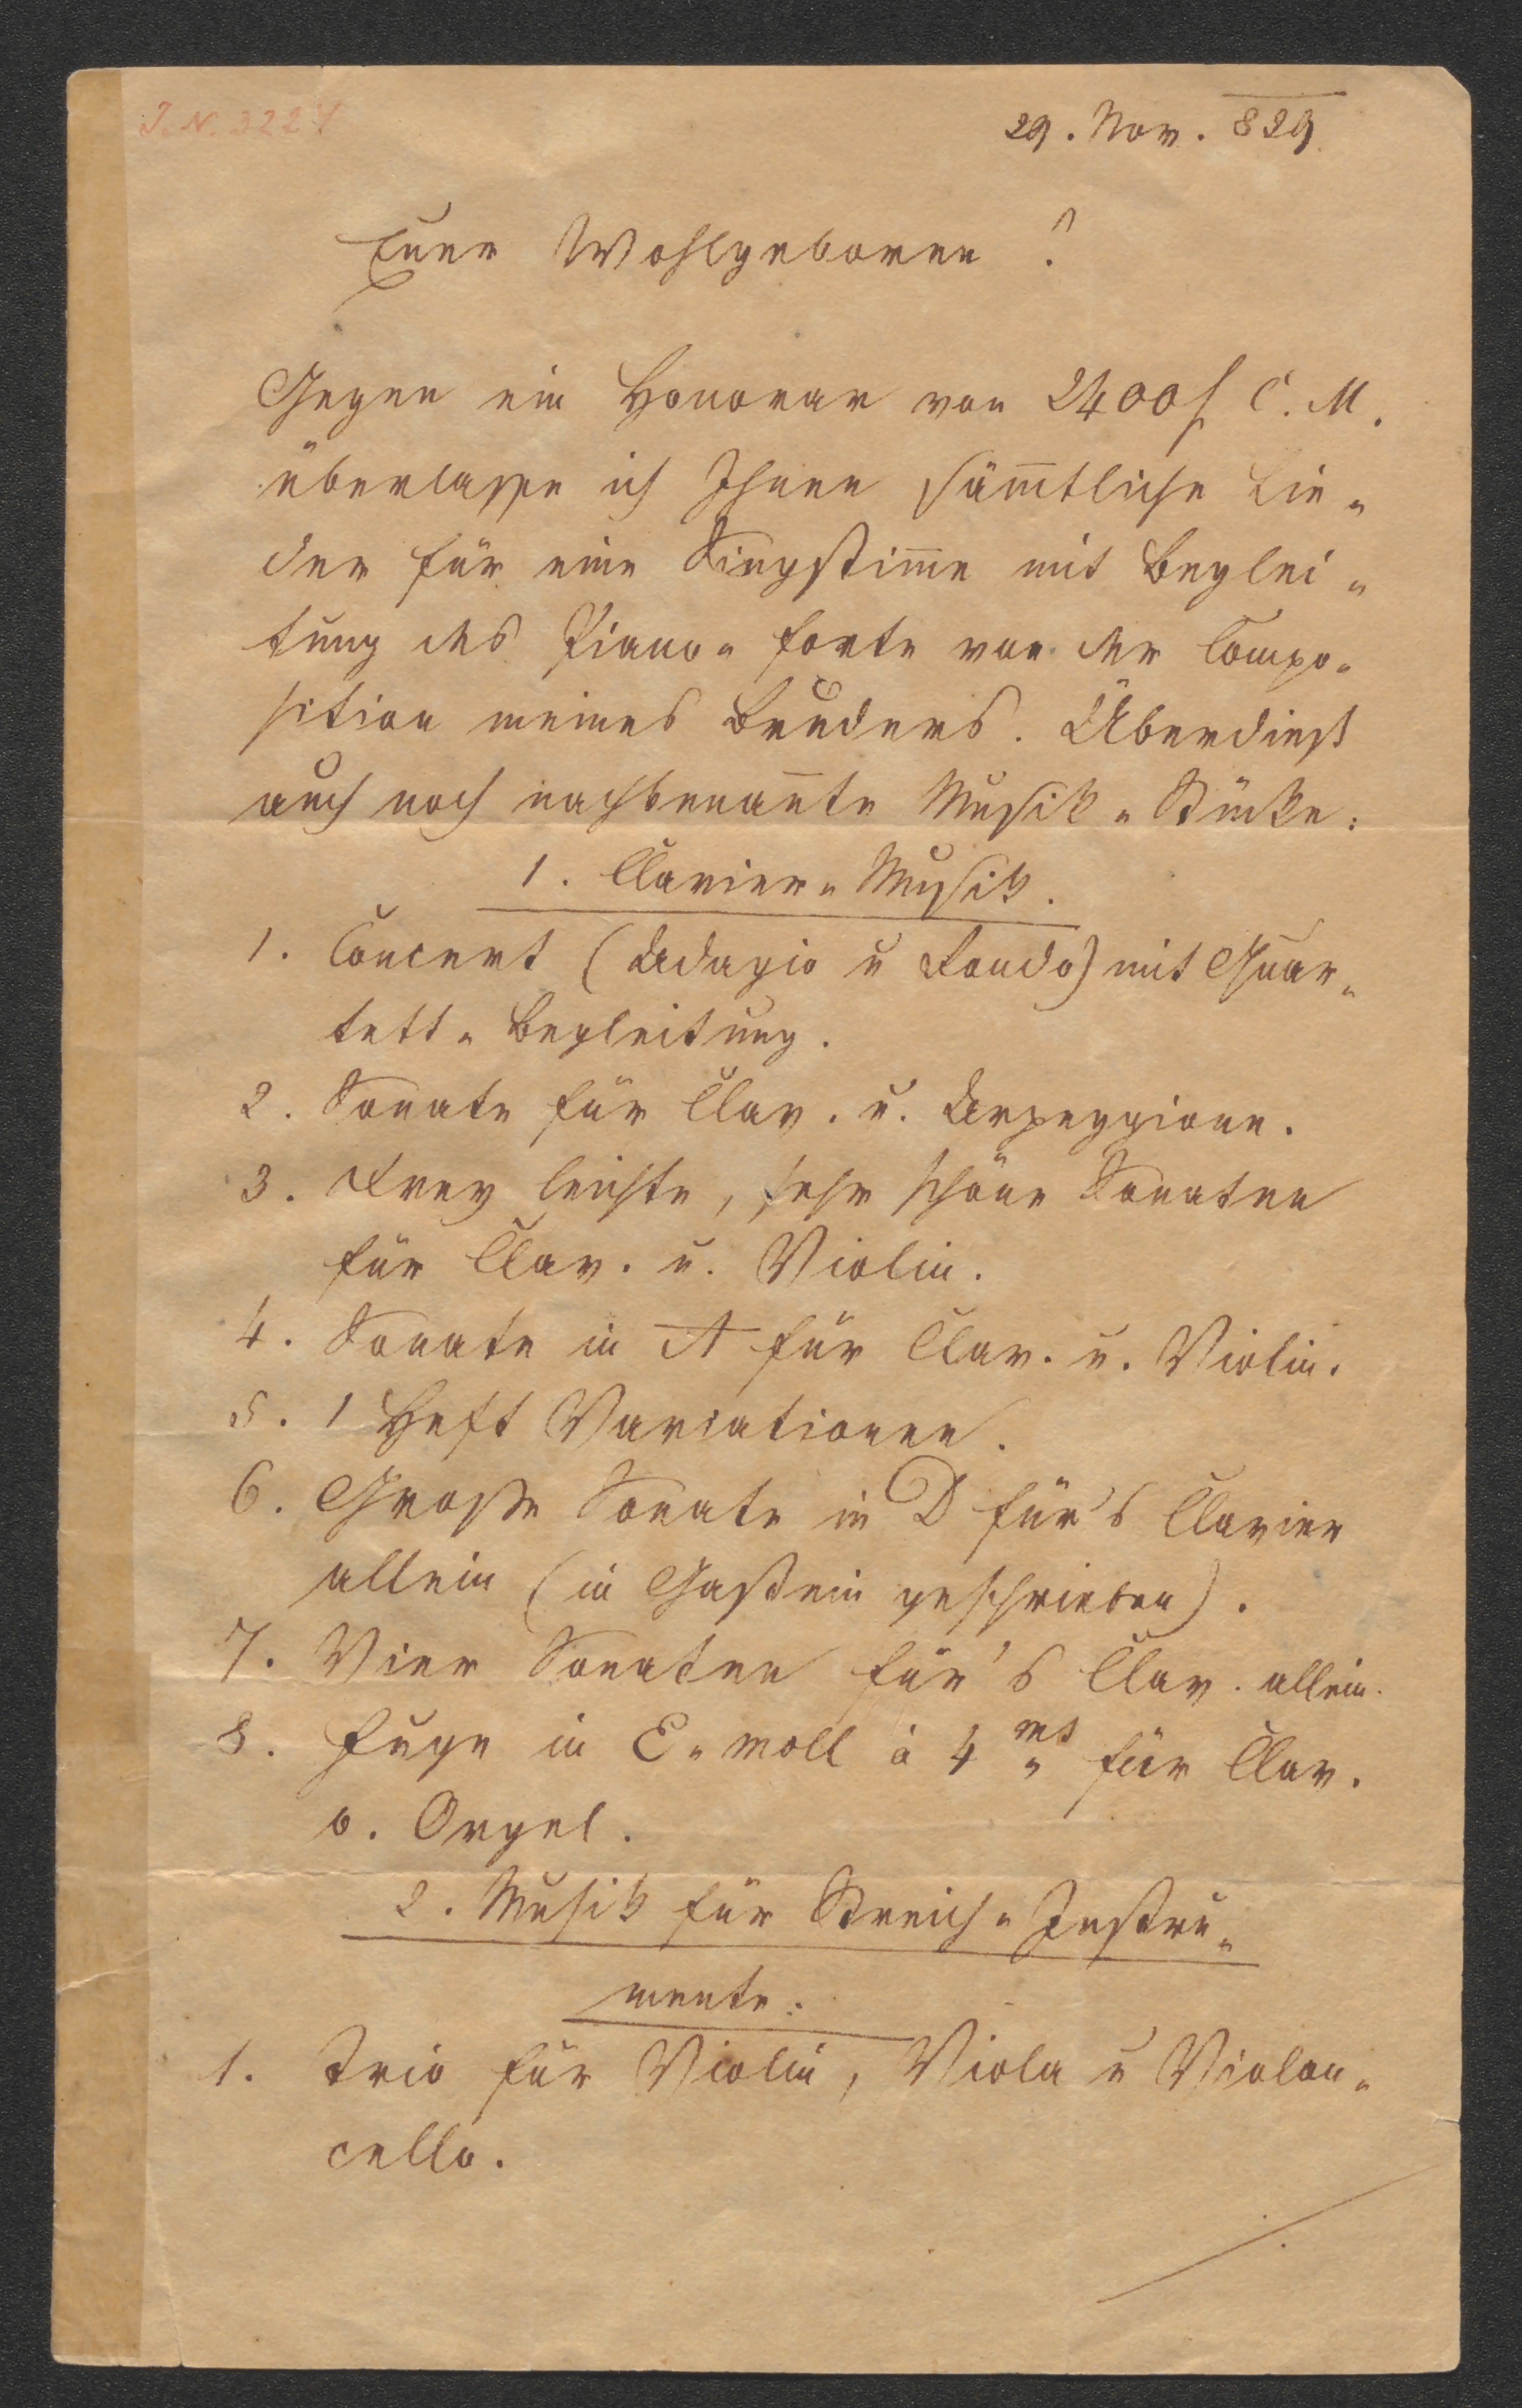 J. N. 3224
29. Nov. 829
Euer Wohlgeboren!
Gegen ein Honorar von 2400 f C. M.
überlasse ich Ihnen sämtliche Lie-
der für eine Singstime mit Beglei-
tung des Piano-forte von der Compo-
sition meines Bruders. Überdieß
auch noch nachbenante Musik-Stücke:
1. Clavier-Musik.
1. Concert (Adagio u Rondo) mit Quar-
tett-Begleitung.
2. Sonate für Clav. u. Arpeggione.
3. Drey leichte, sehr schöne Sonaten
für Clav. u. Violin.
4. Sonate in A für Clav. u. Violin.
5. 1 Heft Variationen.
6. Große Sonate in D für's Clavier
allein (in Gastein geschrieben).
7. Vier Sonaten für's Clav. allein.
8. Fuge in E-moll à 4 ms für Clav.
o. Orgel.
2. Musik für Streich-Instru-
mente:
1. Trio für Violin, Viola u Violon-
cello.
./.